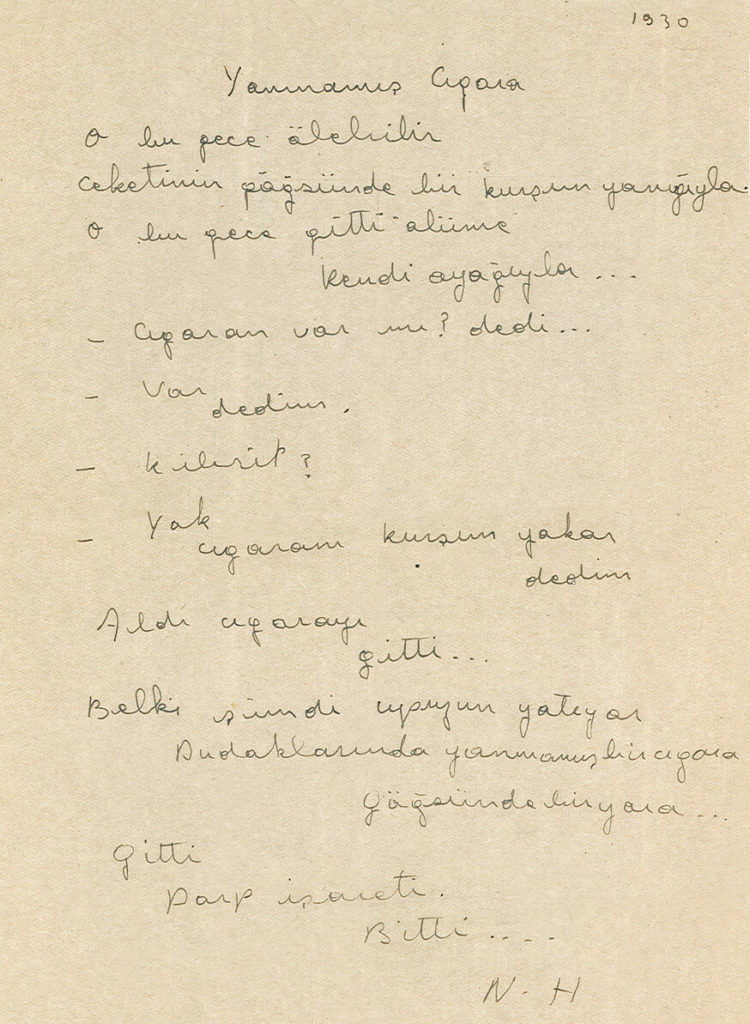 1930
Yanmamış Cıgara
O bu gece ölebilir
Ceketinin göğsünde bir kurşun yanığıyla.
O bu gece gitti ölüme
Kendi ayağıyla ...
- Cıgaran var mı? dedi...
- Var
dedim.
- Kibrit?
- Yok
cıgaranı kurşun yakar
dedim
Aldı cıgarayı
gitti...
Belki şimdi upuzun yatıyor
Dudaklarında yanmamış bir cıgara
Göğsünde bir yara ...
Gitti
Darp işareti.
Bitti ....
N. H